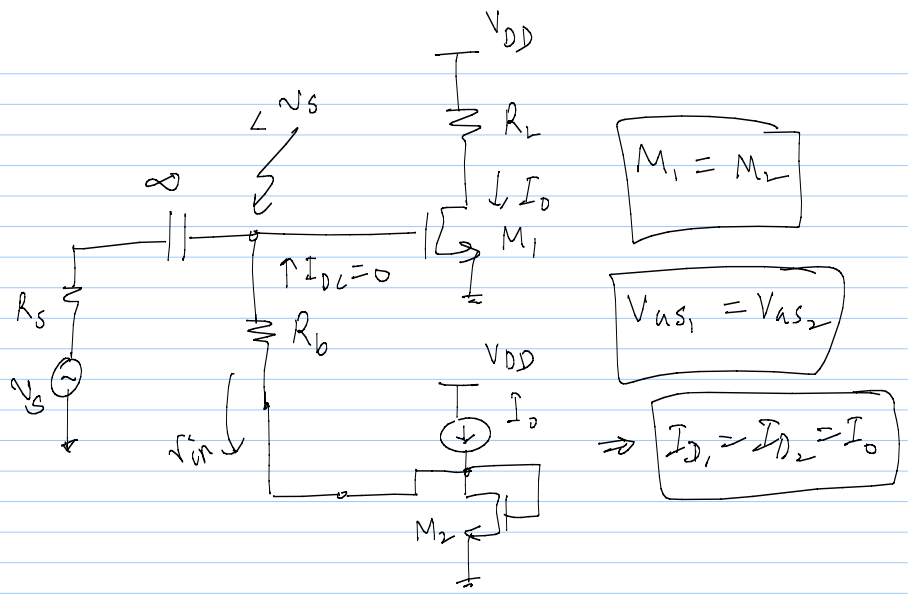 V_DD
< v_s
R_L
∞
↓ I_0
M_1
M_1 = M_2
↑ I_DC = 0
R_s
R_b
V_GS_1 = V_GS_2
V_DD
v_s
I_0
r_in
⇒ I_D_1 = I_D_2 = I_0
M_2